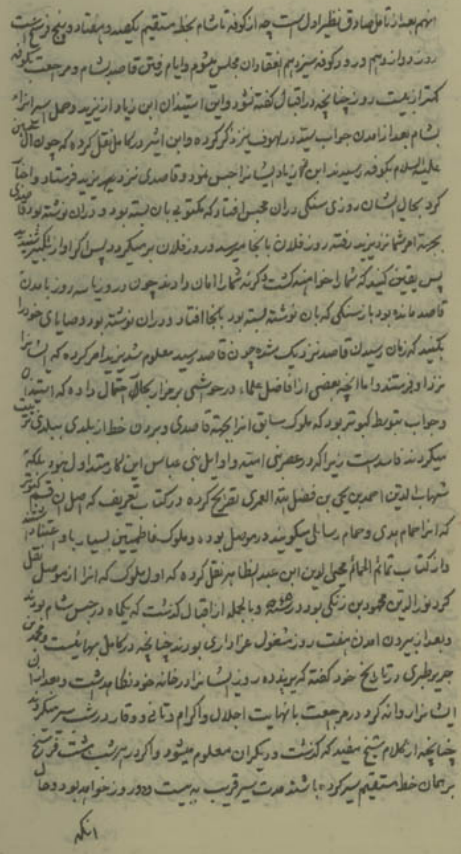 انهم بعد از تامل صادق نظیر اول است چه از کوفه تا شام بخط مستقیم یکصد و هفتاد و پنج فرسخ است
روز دوازدهم ورود کوفه سیزدهم انعقاد آن مجلس میشوم و ایام رفتن قاصد بشام و مراجعت بکوفه
کمتر از بیست روز چنانچه در اقبال گفته نشود و این استیذان ابن زیاد از یزید و حمل سر
بشام بعد از آمدن جواب سید در لهوف نیز ذکر کرده و ابن اثیر در کامل نقل کرده که چون آل
علیه السلام بکوفه رسیدند ابن زیاد ایشانرا حبس نمود و قاصدی نزد یزید فرستاد و
کرد بحال ایشان روزی سنگی در آن محبس افتاد که مکتوبی بان بسته بود و در آن نوشته بود
بجهة امر شما نزد یزید رفته روز فلان بانجا میرسد و روز فلان بر میگردد پس اگر آواز تکبیر شنیدید
پس یقین کنید که شما را خواهند کشت و گرنه شما را امان دادند چون دو روز یا سه روز بآمدن
قاصد مانده بود باز سنگی که بان نوشته بسته بود بانجا افتاد و در آن نوشته بود وصایای خود را
بکنید که زمان رسیدن قاصد نزدیک شده چون قاصد رسید معلوم شد یزید امر کرده که ایشانرا
نزد او بفرستند و اما آنچه بعضی از افاضل علماء در حواشی بر مزار بحار احتمال داده که استیذان
و جواب بتوسط کبوتر بود که ملوک سابق آنرا بجهة قاصدی و بردن خط از بلدی ببلدی
میکردند فاسد است زیرا که در عصر بنی امیه و اوایل بنی عباس این کار متداول نبود بلکه
شهاب الدین احمد بن یحیی بن فضل الله العمری تصریح کرده در کتاب تعریف که اصل این قسم کبوتر
که آنرا حمام هدی و حمام رسائلی میگویند در موصل بوده و ملوک فاطمیین بسیار باو اعتنا
و از کتاب تمائم الحمائم محیی الدین ابن عبد الظاهر نقل کرده که اول ملوک که آنرا از موصل نقل
کرد نورالدین محمود بن زنگی بود در سنه و بالجمله از اقبال گذشت که یکماه در حبس شام بودند
و بعد از بیرون آمدن هفت روز مشغول عزاداری بودند چنانچه در کامل بهائیست و محمد بن
جریر طبری در تاریخ خود گفته که یزید ده روز ایشانرا در خانه خود نگاهداشت و بعد از آن
ایشانرا روانه کرد و مراجعت با نهایت اجلال و اکرام و تأنی و وقار در شب سیر میکردند
چنانچه از کلام شیخ مفید که گذشت و دیگران معلوم میشود و اگر در هر شب هشت فرسخ
بر همان خط مستقیم سیر کرده باشند مدت سیر قریب به بیست و دو روز خواهد بود و حال
آنکه